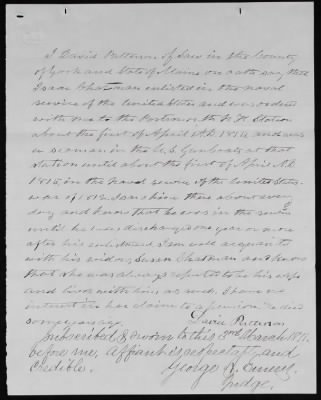 I David Patterson of Saco in the County
of York and State of Maine on oath say that
Isaac Chatman enlisted in the naval
service of the United States and was ordered
with me to the Portsmouth N.H. Station
about the first of April A.D. 1814 and was
a seaman in the U.S. Gunboats at that
station until about the first of April A.D.
1815, in the Naval service of the United States
war of 1812. I saw him there about every
day and know that he was in the service
until he was discharged one year or more
after his enlistment I am well acquainted
with his widow, Susan Chatman and know
that she was always reputed to be his wife
and lived with him as such. I have no
interest in her claim to a pension. He died
some years ago.
David Patterson
Subscribed & sworn to this 3rd March 1871
before me, affiant is respectable and
credible.
George H.
Judge.